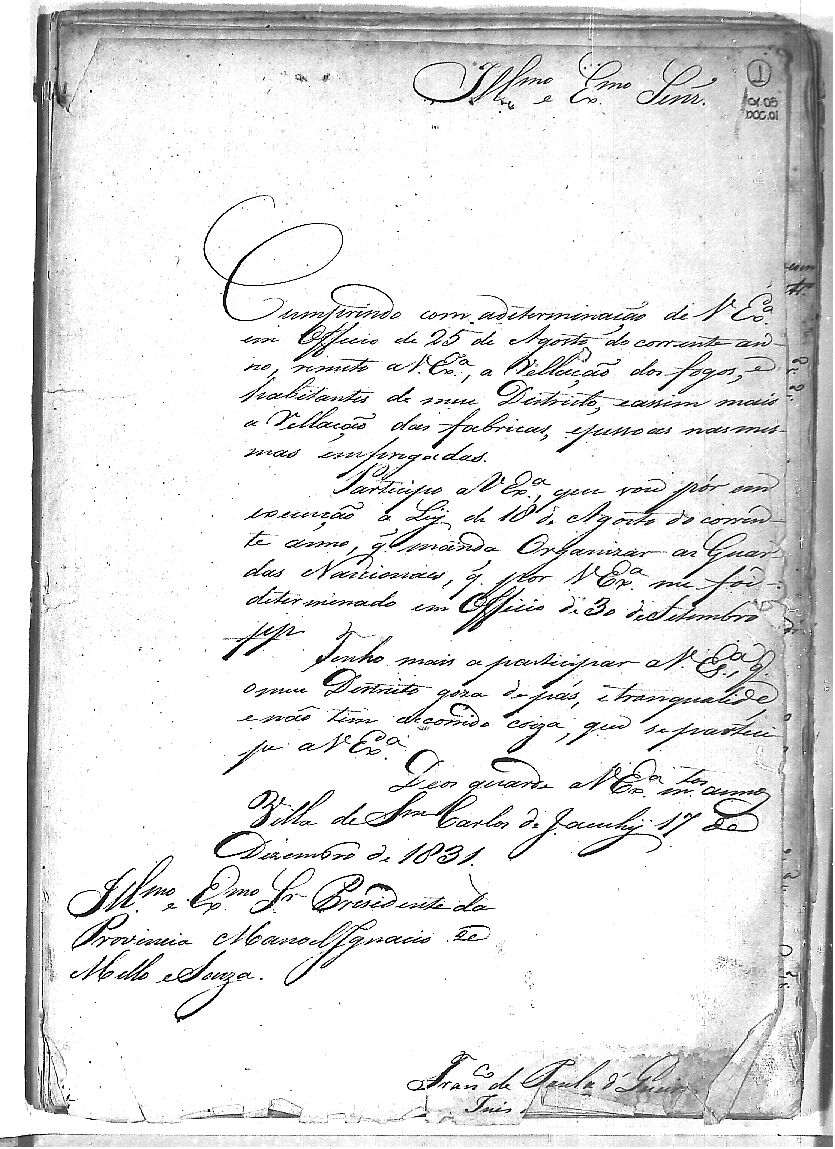 Illmo e Exmo Senr.
1
CX.05
DOC.01
Cumprindo com adeterminação de V Exa.
em Officio de 25 de Agosto do corrente an-
no, remeto a V. Exa., a Rellação dos fogos, e
habitantes de meu Districto, eassim mais
a Rellação das fabricas, epessoas nas mes-
mas empregadas.
Participo a V Exa., que vou pôr em
execução a Ley de 18 de Agosto do corren-
te anno, q̃ manda Organizar as Guar-
das Nacionaes, q̃ por V Exa. me foi
determinado em Officio de 30 de Setembro
pp
Tenho mais a participar a V. Exa., q̃
o meu Districto goza de pás, e tranqualide,
e não tem accorrido coiza, que se partici
pe a V Exa.
Deos guarde a V Exa. ms. annos
Villa de Sm Carlos de Jacuhy 17 de
Dizembro de 1831.
Illmo e Exmo Sr Prezidente da
Provincia Manoel Ignacio de
Mello e Souza.
Franco. de Paula d'